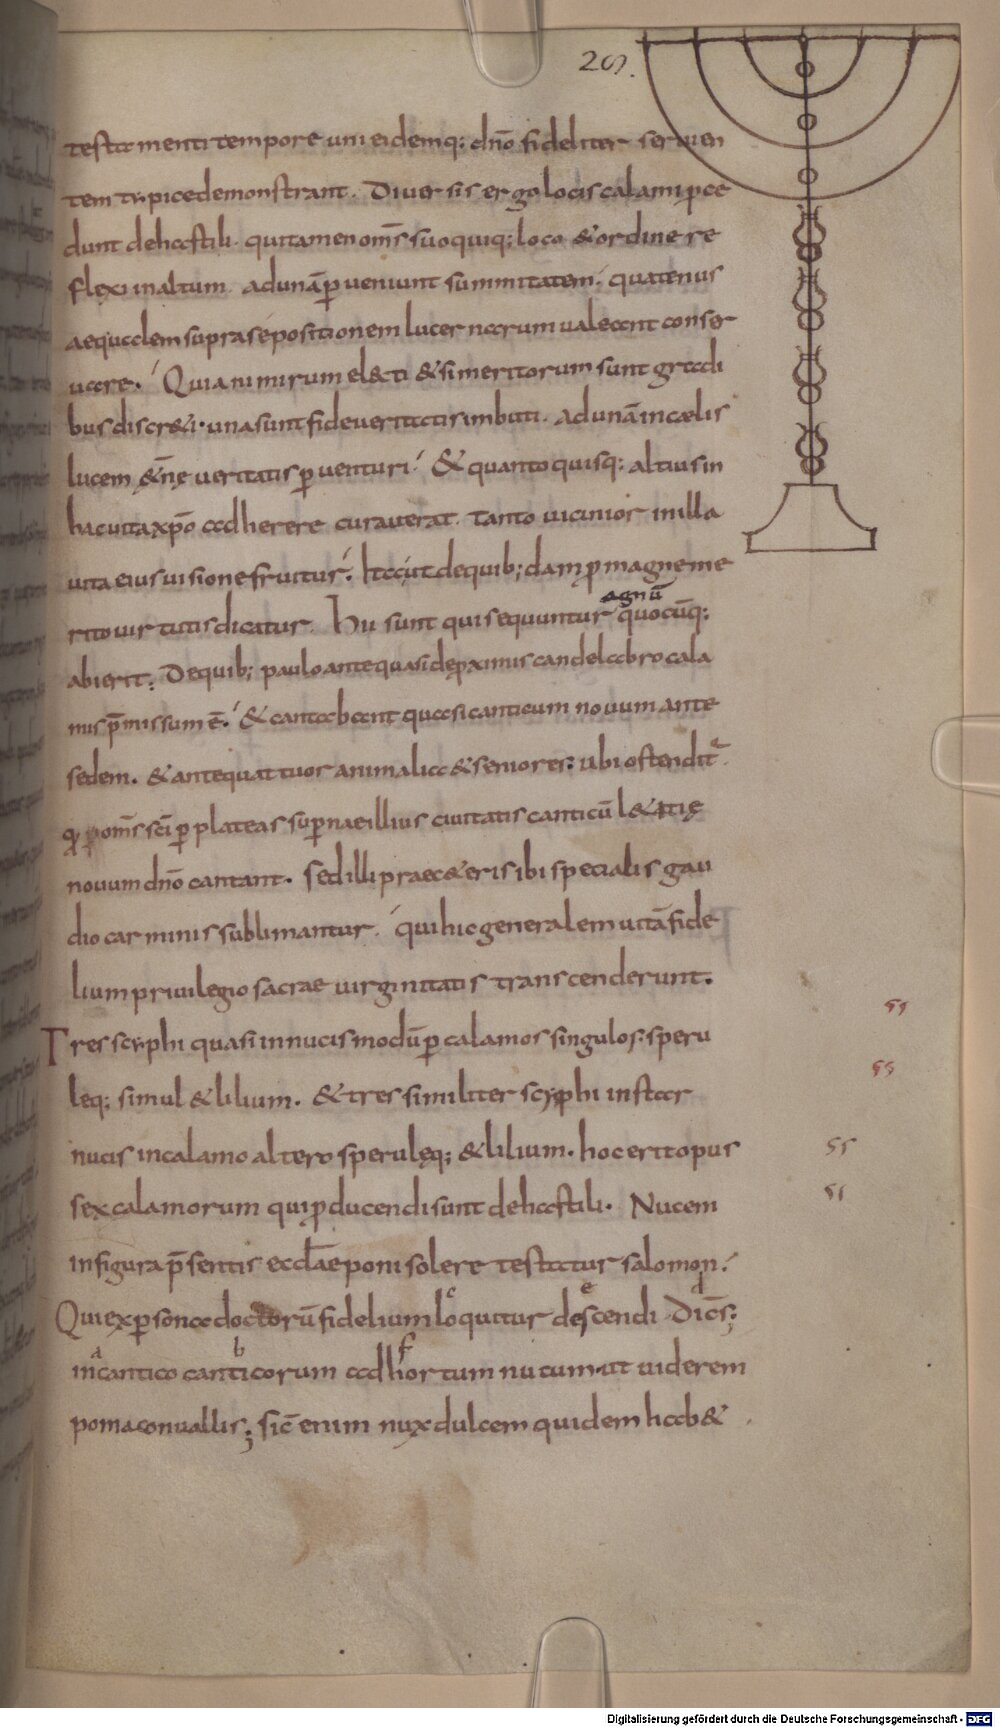 29.
testamenti tempore uni eidemq; dn̄o fideliter seruien
tem typice demonstrant. Diuersis ergo locis calami ꝓce
dunt de hastili. qui tamen om̄s suo quiq; loco & ordine re
flexi in altum. ad unā ꝑueniunt summitatem. quatenus
aequalem supra se positionem lucernarum ualeant conser
uare. Quia nimirum el&ti & si meritorum sunt gradi
bus discr&i. una sunt fide ueritatis imbuti. ad unā in caelis
lucem &̄nę ueritatis ꝑuenturi. & quanto quisq; altius in
hac uita xp̄o adherere curauerat. tanto uicinior in illa
uita eius uisione fruitur. Ita ut de quib; dam ꝓ magno me
rito uirtutis dicatur. Hii sunt qui sequuntur agnū quocūq;
abierit; De quib; paulo ante quasi de ꝓximis candelabro cala
mis p̄missum ē. & cantabant quasi canticum nouum ante
sedem. & ante quattuor animalia & seniores; ubi ostendit
qđ om̄s sc̄i ꝑ plateas suꝑnae illius ciuitatis canticū l&itię
nouum dn̄o cantant. sed illi praec&eris ibi specialis gau
dio carminis sublimantur. qui hic generalem uitā fide
lium priuilegio sacrae uirginitatis transcenderunt.
Tres scyphi quasi in nucis modū ꝑ calamos singulos; speru
leq; simul & lilium. & tres similiter scyphi instar
nucis in calamo altero sperulęq; & lilium. hoc erit opus
sex calamorum qui ꝓducendi sunt de hastili. Nucem
in figura p̄sentis ecclae poni solere testatur salomon.
Qui ex ꝑsona doctorū fidelium loquitur descendi. Dic̄s;
in cantico canticorum ad hortum nucum. ut uiderem
poma conuallis; sic̄ enim nux dulcem quidem hab&
Digitalisierung gefördert durch die Deutsche Forschungsgemeinschaft - DFG